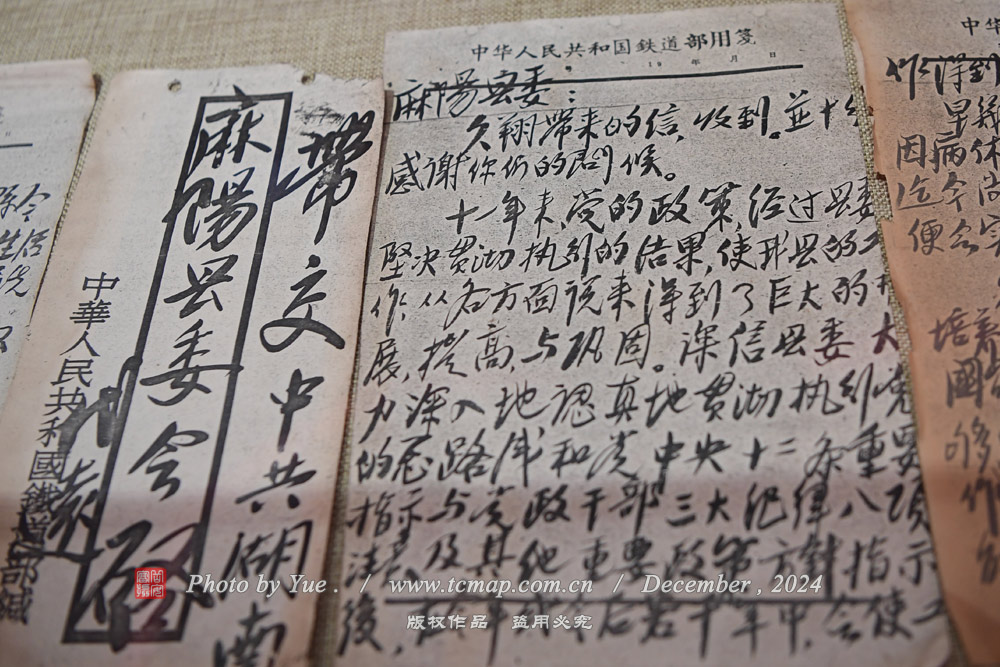 带交中共湖南
麻陽县委会
中華人民共和國鐵道部緘
中华人民共和国鉄道部用箋
19 年 月 日
麻陽县委:
久翔带来的信,收到。並十分
感谢你们的問候。
十一年来,党的政策,经过县委
坚决贯彻执行的结果,使我县的工
作,从各方面说来得到了巨大的
展,提高,与巩固。深信县委大
力深入地认真地贯彻执行党
的总路线和党中央十二条重要
指示与党政干部三大纪律八项
及其他重要政策方針指示
後,
若干年中,会使工
作得到
因病休
迄今尚
便
培养
国
够
作
Photo by Yue . / www.tcmap.com.cn / December , 2024
版权作品 盗用必究